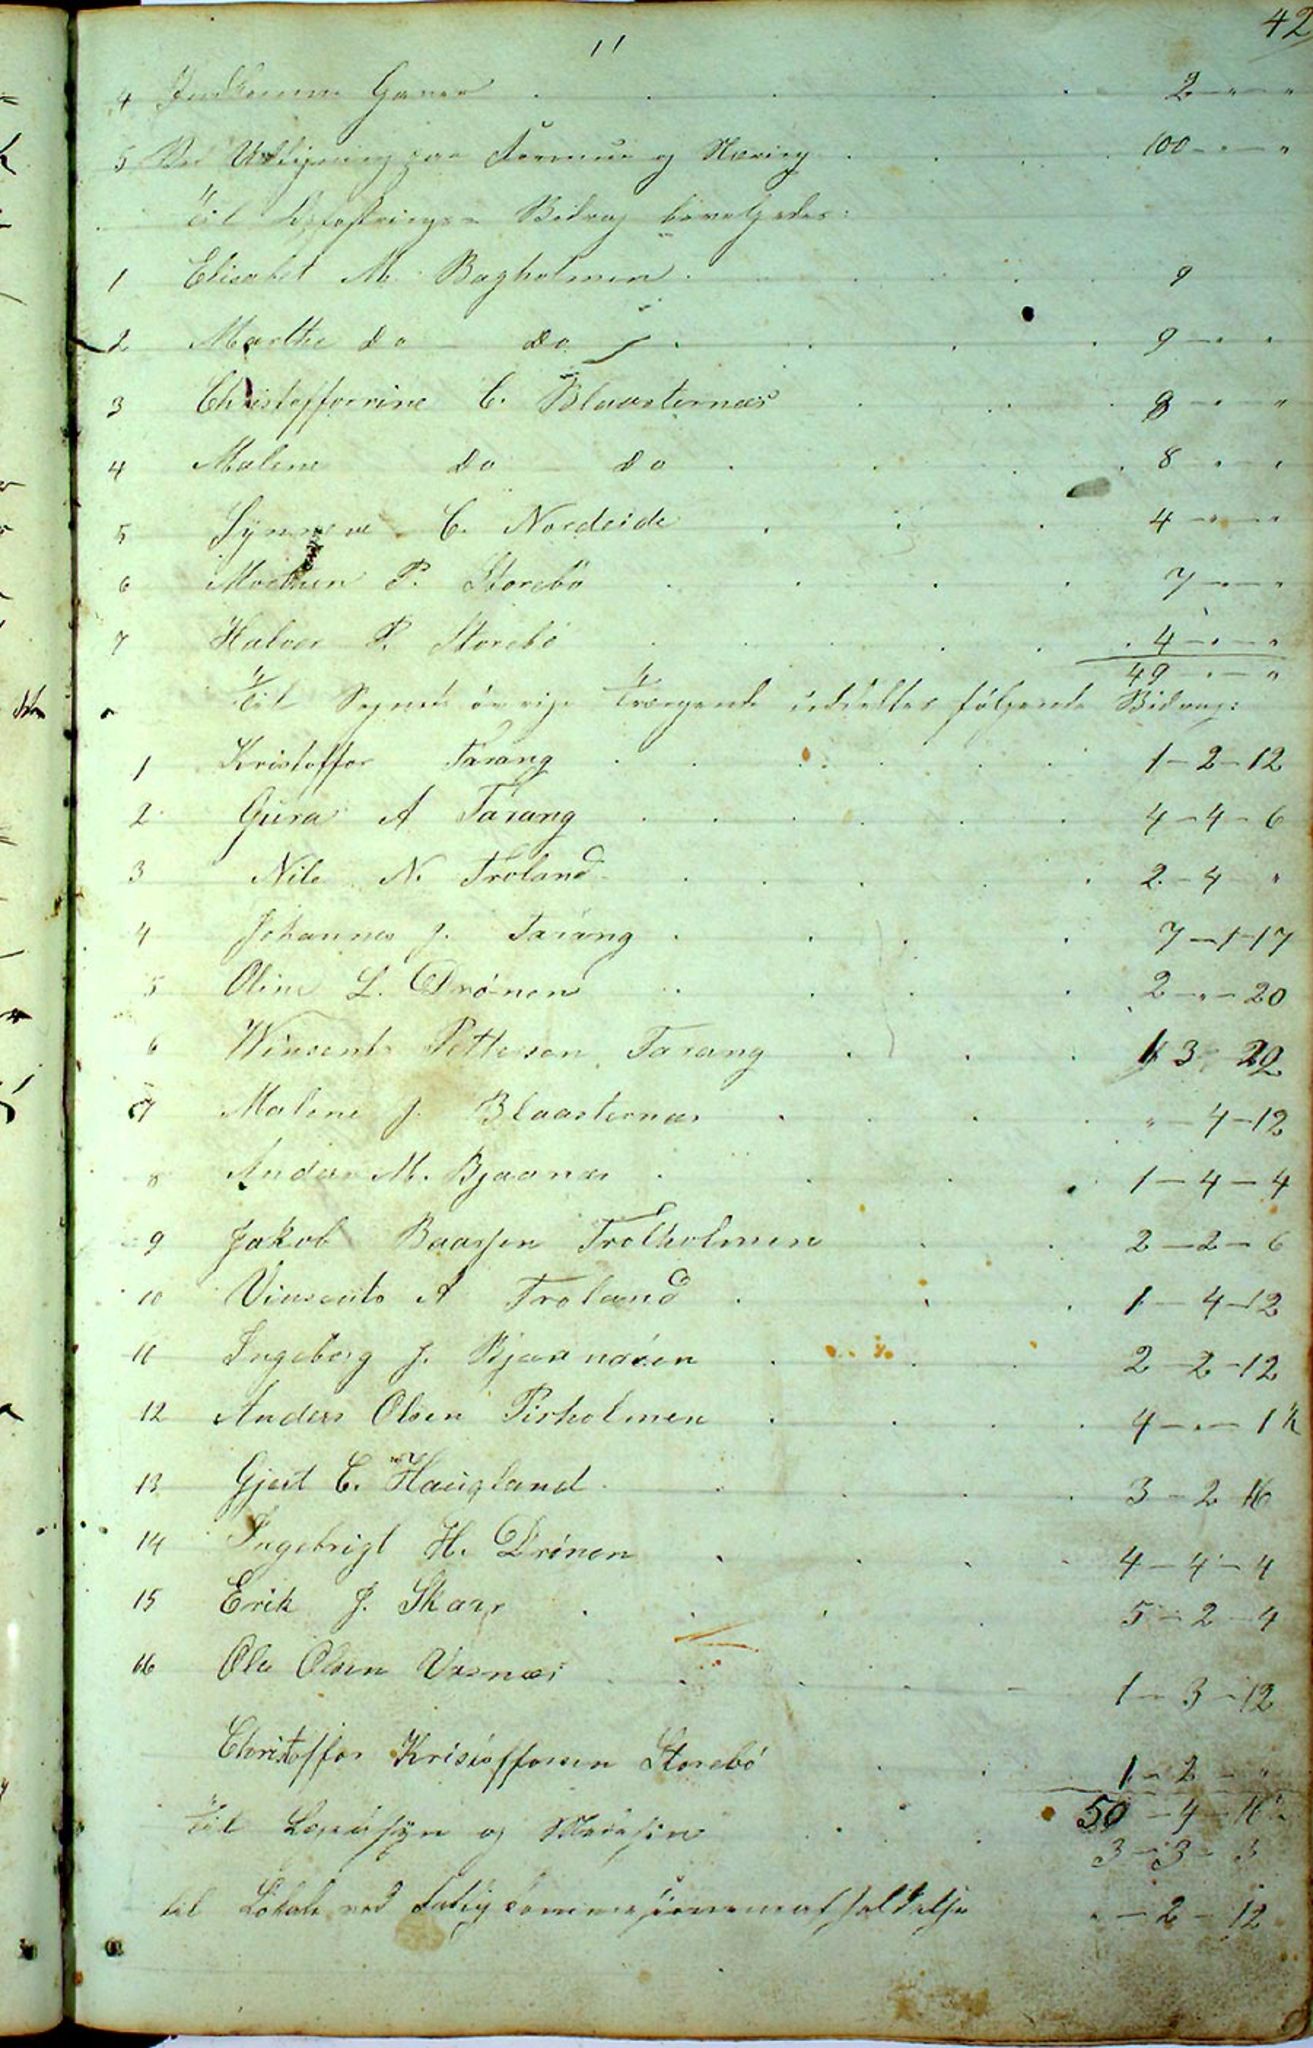 42
11
4 Indkomne Gaver 2 - " - "
5 Ved Udligning paa Formue og Næring 100 - " - "
Til Opfostrings-Bidrag bevilgedes:
1 Elisabet M. Bagholmen 9
2 Marthe do do 9 - " - "
3 Christofferine C. Blaasternæs 8 - " - "
4 Malene do do 8 - " - "
5 Synneve C. Nordeide 4 - " - "
6 Morthen P. Storebö 7 - " - "
7 Halvor P. Storebö 4 - " - "
49 - " - "
Til Sognets övrige Trængende uddeltes følgende Bidrag:
1 Kristoffer Tarang 1 - 2 - 12
2 Gura A Tarang 4 - 4 - 6
3 Nils N. Troland 2 - 4 "
4 Johannes J. Tarang 7 - 1 - 17
5 Oline L. Drónen 2 - " - 20
6 Winsents Pettersen Tarang 1 3 22
7 Malene J. Blaasternæs " - 4 - 12
8 Anders M. Bjaanæs 1 - 4 - 4
9 Jakob Baarsen Trolholmen 2 - 2 - 6
10 Vinsents A Troland 1 - 4 - 12
11 Ingeborg J. Bjaanæsen 2 - 2 - 12
12 Anders Olsen Pirholmen 4 - " - 1½
13 Gjert C. Haugland 3 - 2 16
14 Ingebrigt H. Drónen 4 - 4 - 4
15 Erik J. Skaar 5 - 2 - 4
16 Ole Olsen Vasnæs 1 - 3 - 12
Christoffer Kristoffersen Storebó 1 - 2 - "
50 - 4 -
Til Lægetilsyn og Medesin 3 - 3 - 3
til Lokale ved Fatigkommisjonens afholdelse " - 2 - 12